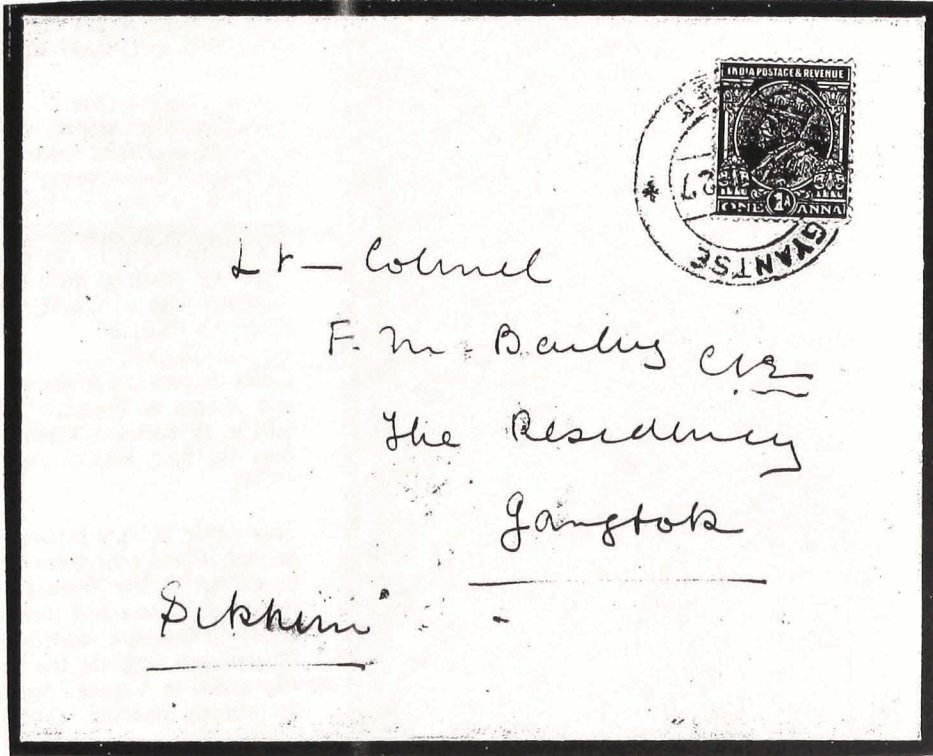 INDIA POSTAGE & REVENUE
ONE 1A ANNA
GYANTSE
Lt - Colonel
F. M. Bailey CIE
The Residency
Gangtok
Sikkim